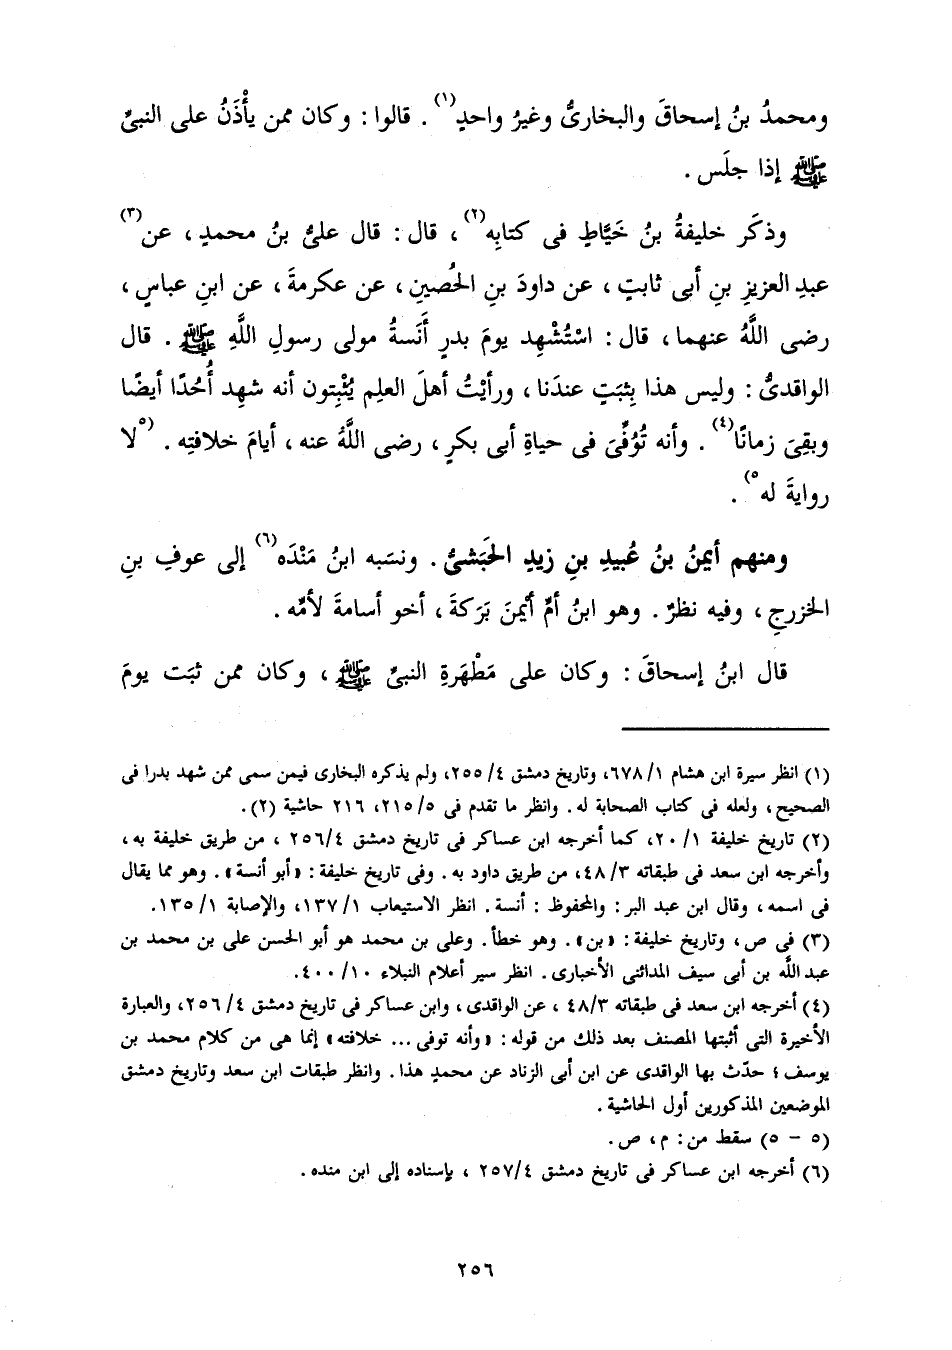 ومحمدُ بنُ إسحاقَ والبخارىُّ وغيرُ واحدٍ(١) . قالوا : وكان ممن يأْذَنُ على النبىِّ
ﷺ إذا جلَس .
وذكَر خليفةُ بنُ خَيَّاطٍ فى كتابِه(٢) ، قال : قال علىُّ بنُ محمدٍ ، عن(٣)
عبدِ العزيزِ بنِ أبى ثابتٍ ، عن داودَ بنِ الحُصينِ ، عن عكرمةَ ، عن ابنِ عباسٍ ،
رضى اللَّهُ عنهما ، قال : اسْتُشْهِد يومَ بدرٍ أَنَسةُ مولى رسولِ اللَّهِ ﷺ . قال
الواقدىُّ : وليس هذا بثبَتٍ عندَنا ، ورأيْتُ أهلَ العلمِ يُثْبِتون أنه شهِد أُحُدًا أيضًا
وبقِىَ زمانًا(٤) . وأنه تُوُفِّىَ فى حياةِ أبى بكرٍ ، رضى اللَّهُ عنه ، أيامَ خلافتِه . (٥ لا
روايةَ له ٥) .
ومنهم أيمنُ بنُ عُبيدِ بنِ زيدٍ الحَبَشىُّ . ونسَبه ابنُ مَنْدَه(٦) إلى عوفِ بنِ
الخزرجِ ، وفيه نظرٌ . وهو ابنُ أمِّ أيْمنَ بَرَكةَ ، أخو أسامةَ لأمِّه .
قال ابنُ إسحاقَ : وكان على مَطْهَرةِ النبىِّ ﷺ ، وكان ممن ثبَت يومَ
(١) انظر سيرة ابن هشام ١/ ٦٧٨، وتاريخ دمشق ٤/ ٢٥٥، ولم يذكره البخارى فيمن سمى ممن شهد بدرا فى
الصحيح ، ولعله فى كتاب الصحابة له . وانظر ما تقدم فى ٥/ ٢١٥، ٢١٦ حاشية (٢).
(٢) تاريخ خليفة ١/ ٢٠، كما أخرجه ابن عساكر فى تاريخ دمشق ٤/ ٢٥٦ ، من طريق خليفة به ،
وأخرجه ابن سعد فى طبقاته ٣/ ٤٨، من طريق داود به . وفى تاريخ خليفة : «أبو أنسة» . وهو مما يقال
فى اسمه ، وقال ابن عبد البر : والمحفوظ : أنسة . انظر الاستيعاب ١/ ١٣٧، والإصابة ١/ ١٣٥.
(٣) فى ص ، وتاريخ خليفة : «بن» . وهو خطأ . وعلى بن محمد هو أبو الحسن على بن محمد بن
عبد اللَّه بن أبى سيف المدائنى الأخبارى . انظر سير أعلام النبلاء ١٠/ ٤٠٠.
(٤) أخرجه ابن سعد فى طبقاته ٣/ ٤٨ ، عن الواقدى ، وابن عساكر فى تاريخ دمشق ٤/ ٢٥٦، والعبارة
الأخيرة التى أثبتها المصنف بعد ذلك من قوله : «وأنه توفى ... خلافته» إنما هى من كلام محمد بن
يوسف ؛ حدّث بها الواقدى عن ابن أبى الزناد عن محمدٍ هذا . وانظر طبقات ابن سعد وتاريخ دمشق
الموضعين المذكورين أول الحاشية .
(٥ - ٥) سقط من : م ، ص .
(٦) أخرجه ابن عساكر فى تاريخ دمشق ٤/ ٢٥٧ ، بإسناده إلى ابن منده .
٢٥٦